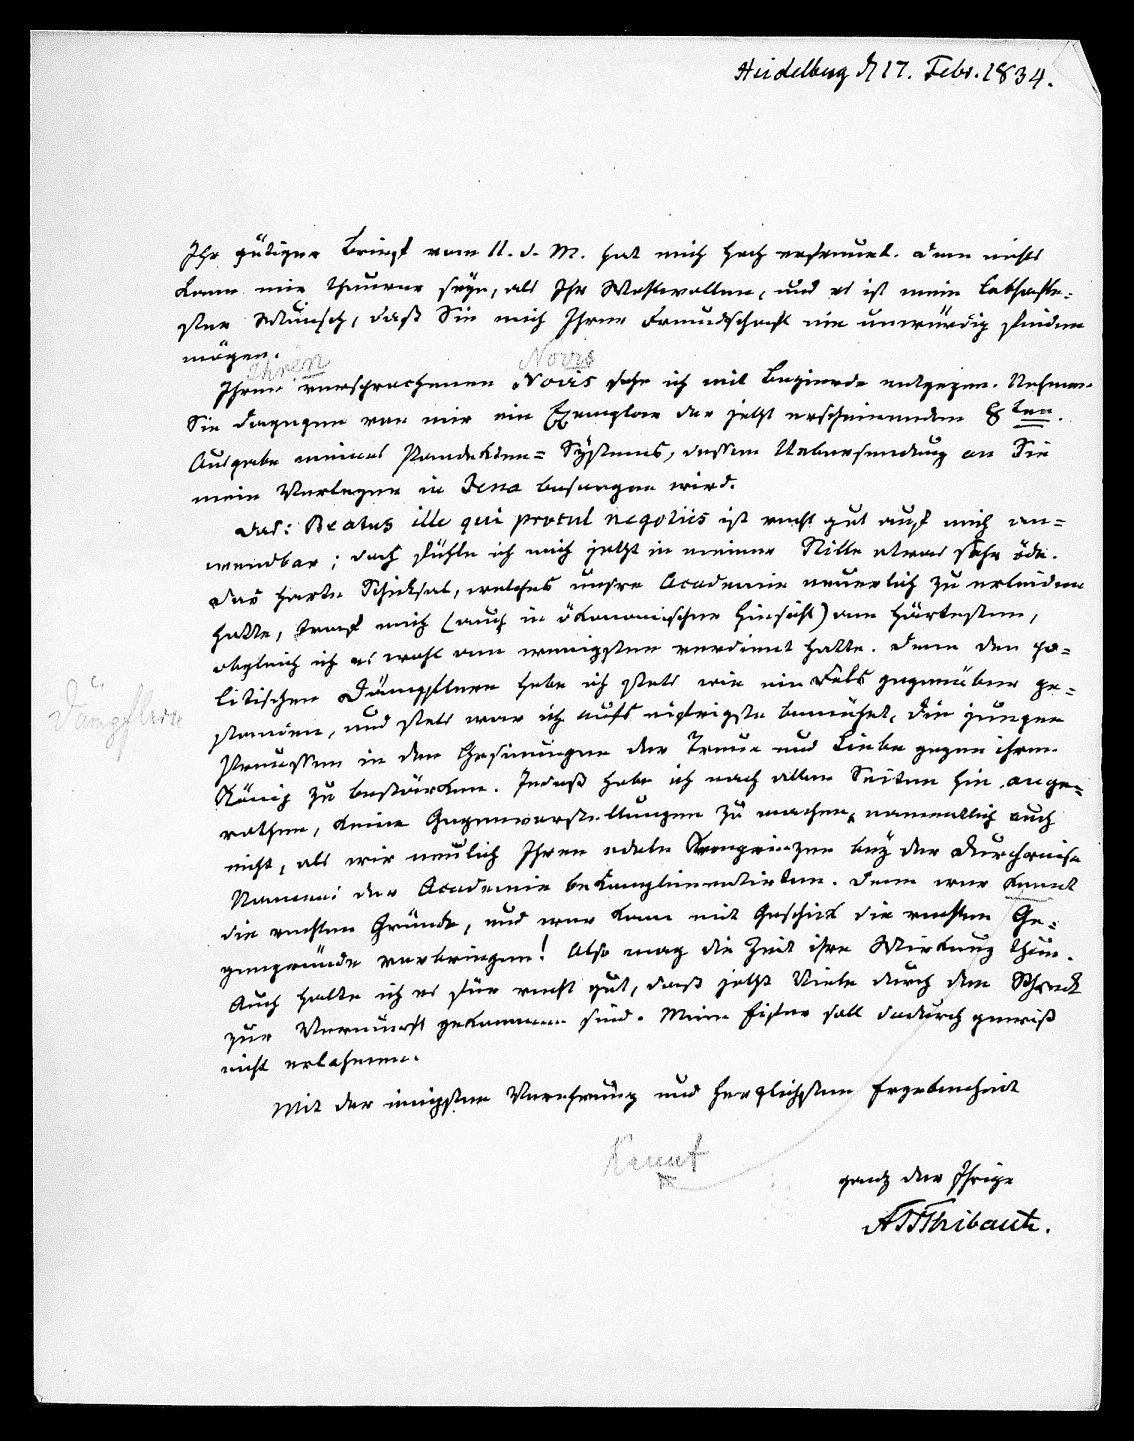 Heidelberg d 17. Febr. 1834.
Ihr gütiger Brief vom 11. d. M. hat mich hoch erfreuet. Denn nichts
kann mir theurer seyn, als Ihr Wohlwollen, und es ist mein lebhafte-
ster Wunsch, daß Sie mich Ihrer Freundschaft nie unwürdig finden
mögen.
Ihren Novis
Ihren versprochenen Novis sehe ich mit Begierde entgegen. Nehmen
Sie dagegen von mir ein Exemplar der jetzt erscheinenden 8ten.
Ausgabe meines Pandekten= Systems, dessen Uebersendung an Sie
mein Verleger in Jena besorgen wird.
Das: Beatus ille qui procul negotiis ist recht gut auf mich an=
wendbar; doch fühle ich mich jetzt in meiner Stille etwas sehr öde.
Das harte Schicksal, welches unsre Academie neuerlich zu erleiden
hatte, traf mich (auch in ökonomischer Hinsicht) am härtesten,
obgleich ich es wohl am wenigsten verdient hatte. Denn den po=
litischen Dämpflern habe ich stets wie ein Fels gegenüber ge=
Dämpflern
standen, und stets war ich aufs eifrigste bemühet, die jungen
Preussen in den Gesinnungen der Treue und Liebe gegen ihren
König zu bestärken. Indeß habe ich nach allen Seiten hin ange=
rathen, keine Gegenvorstellungen zu machen, namentlich auch
nicht, als wir neulich Ihren edeln Kronprinzen bey der Durchreise
Namens der Academie bekomplimentirten. Denn wer kennt
die rechten Gründe, und wer kann mit Geschick die rechten Ge=
gengründe vorbringen! Also mag die Zeit ihre Wirkung thun.
Auch halte ich es für recht gut, daß jetzt Viele durch den Schreck
zur Vernunft gekommen sind. Mein Eifer soll dadurch gewiß
nicht erlahmen.
Mit der innigsten Verehrung und herzlichsten Ergebenheit
Kennt
ganz der Ihrige
AFJThibaut.